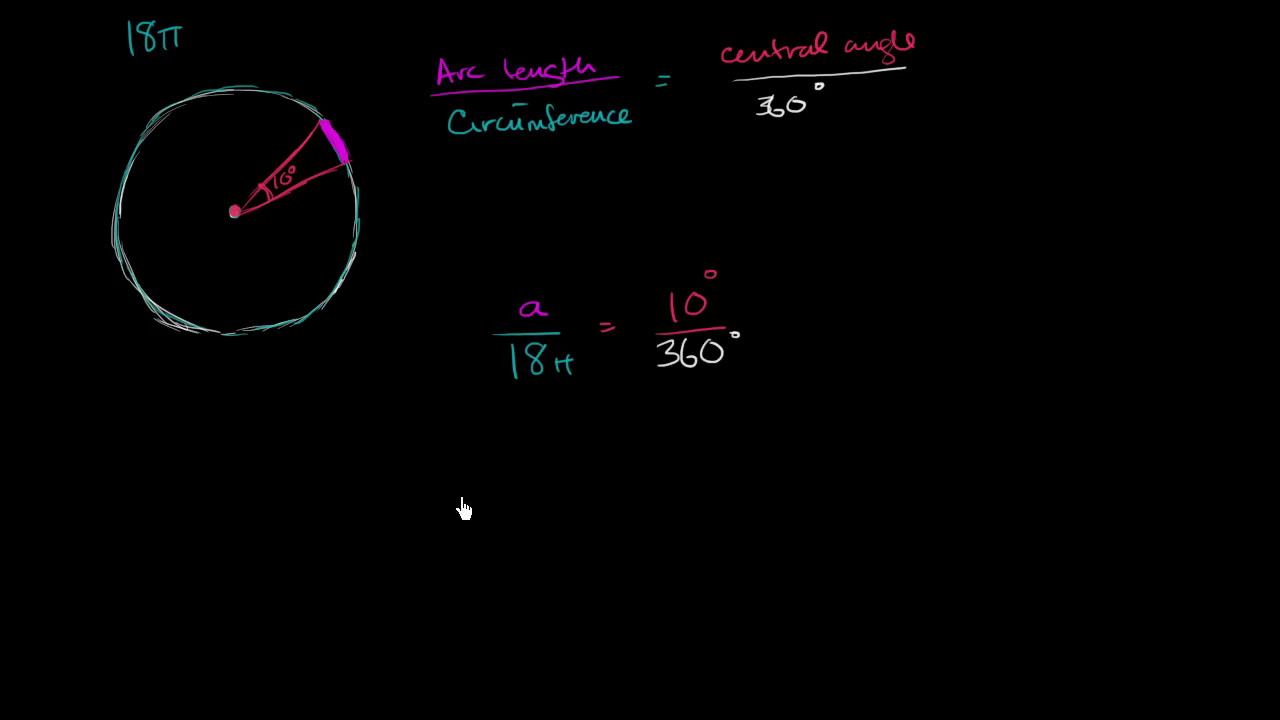 18π
Arc length / Circumference = central angle / 360°
10°
a / 18π = 10° / 360°